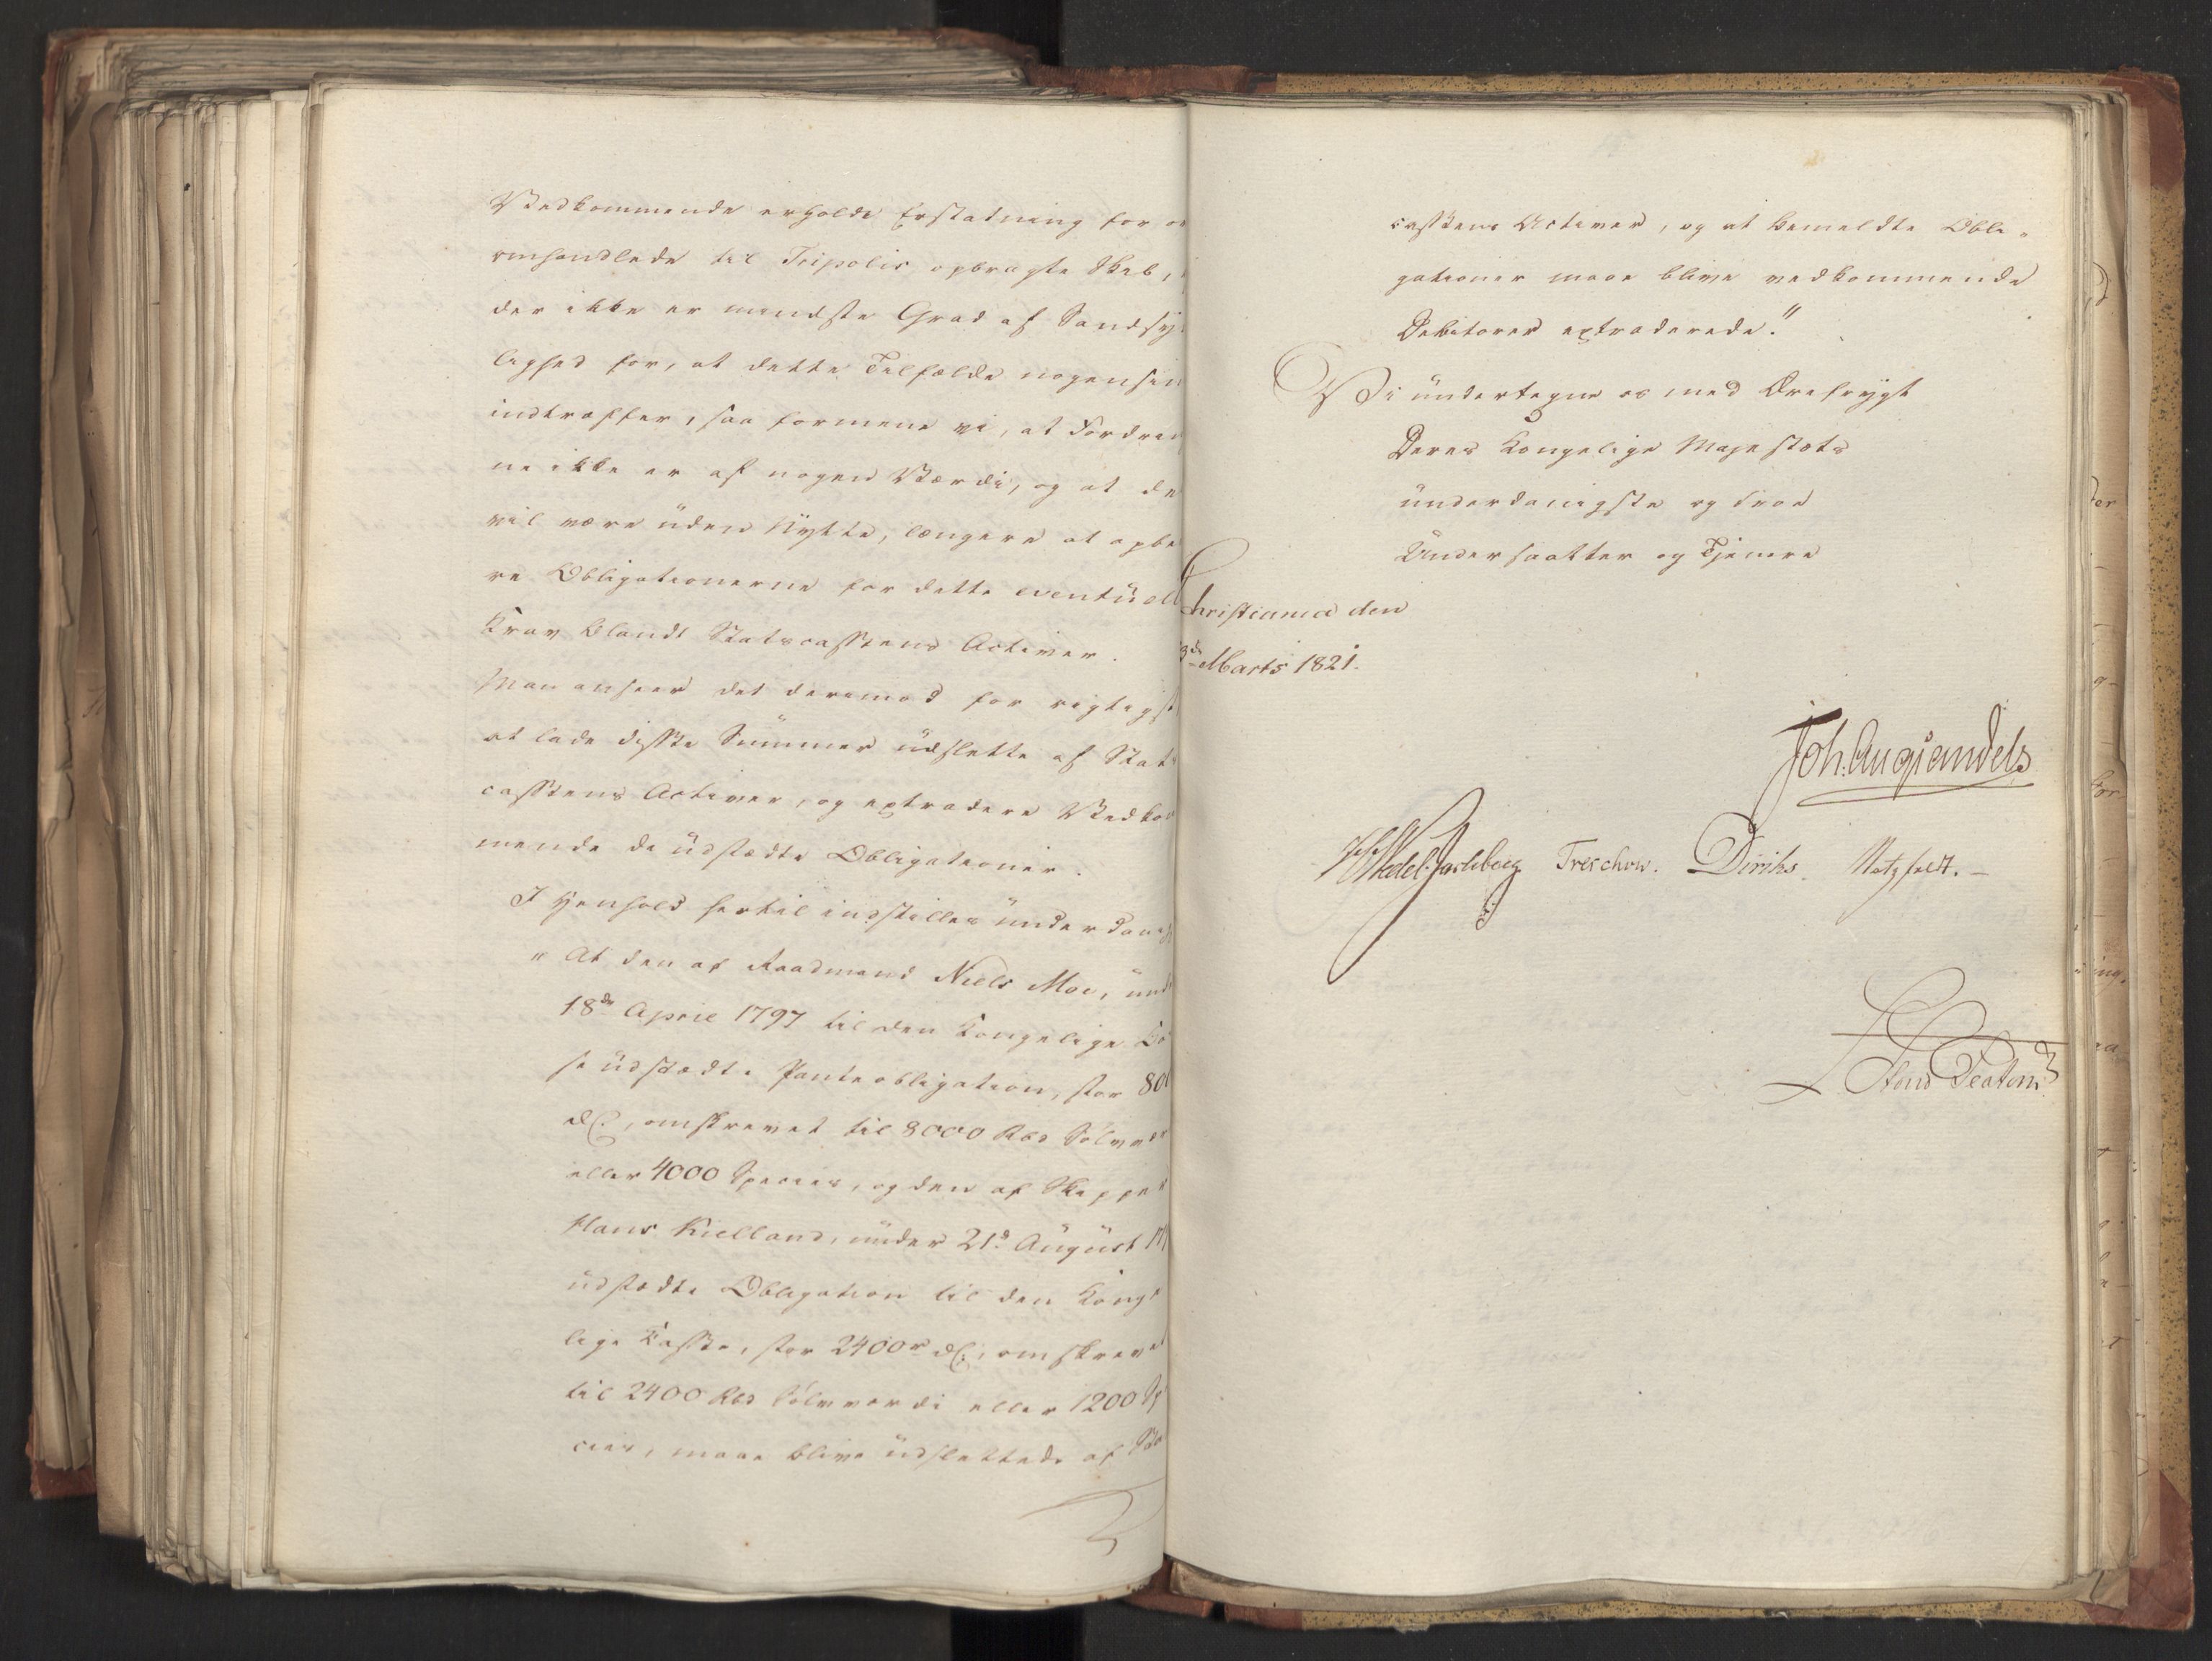 Vedkommende erholde Erstatning for
omhandlede til Tripolis opbragte Skib,
der ikke er mindste Grad af Sandsy
lighed for, at dette Tilfælde nogensin
indtræffer, saa formene vi, at Fordrin
ne ikke er af nogen Værdi, og at de
vil være üden Nytte, længere at opbe
re Obligationerne for dette eventüell
Krav blandt Statscassens Activer.
Man anseer det derimod for rigtigst
at lade disse Summer üdslette af Stats
cassens Activer, og extradere Vedkom
mende de üdstædte Obligationer.
I Henhold hertil indstilles ünderdanigst
"At den af Raadmand Niels Moe, ünd
18de April 1797 til den Kongelige Ca
se üdstædte Panteobligation, stor 800
dl:, omskrevet til 8000 Rbd Sölvv
eller 4000 Species, og den af Skipper
Hans Kielland, ünder 21d August 17
üdstædte Obligation til den Konge
lige Casse, stor 2400r dl:, omskrevet
til 2400 Rbd Sölvværdi eller 1200 Sp
cies, maae blive üdslettede af Sta
cassens Activer, og at bemeldte Obli-
gationer maae blive vedkommende
Debitorer extraderede."
Vi ündertegne os med Ærefrygt
Deres Kongelige Majestæts
ünderdanigste og troe
Undersaatter og Tjenere
Christiania den
3de Marts 1821.
Joh: Aug Sandels
H Wedel Jarlsberg Treschow. Diriks. Motzfeldt.